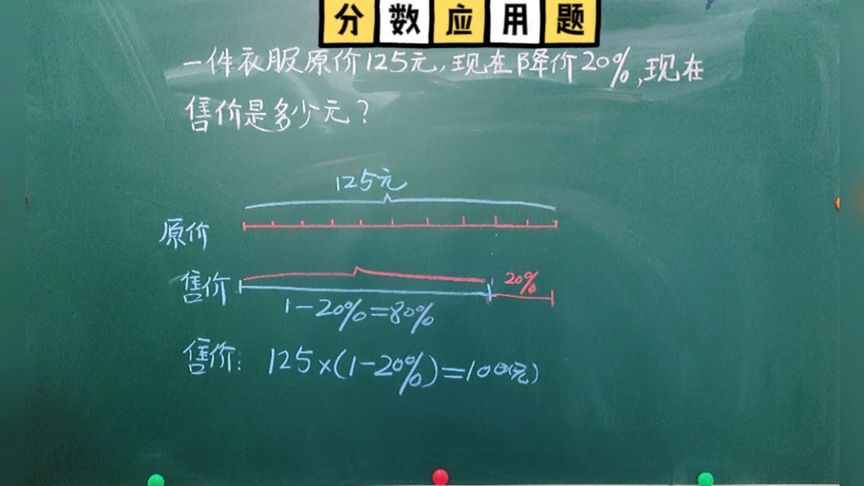 分数应用题
一件衣服原价125元,现在降价20%,现在
售价是多少元?
125元
原价
售价 20%
1-20%=80%
售价: 125×(1-20%)=100(元)